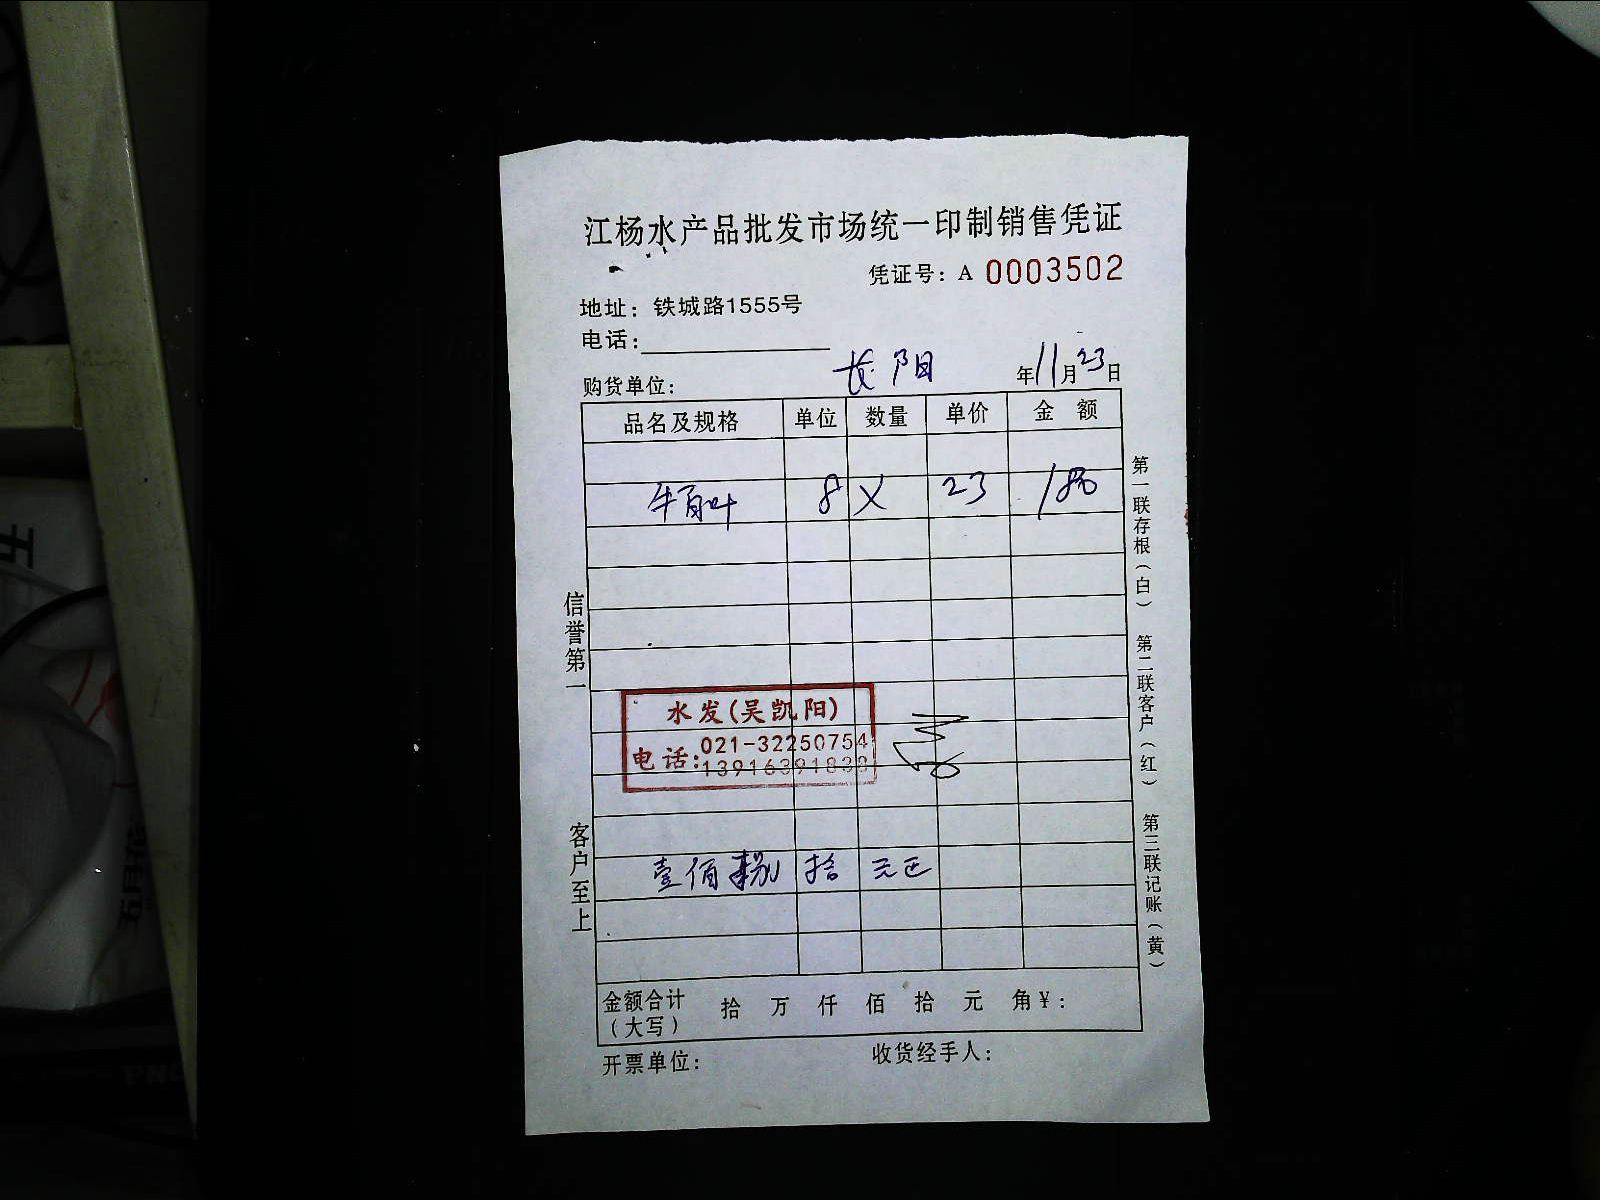 江杨水产品批发市场统一印制销售凭证
凭证号：A 0003502
地址：铁城路1555号
电话：
长阳 年11月23日
购货单位：
品名及规格 单位 数量 单价 金 额
牛百叶 8 23 180
水发(吴凯阳)
电话：021-32250754
壹佰捌拾元正
金额合计（大写） 拾 万 仟 佰 拾 元 角￥：
开票单位： 收货经手人：
信誉第一 客户至上
第一联存根（白） 第二联客户（红） 第三联记账（黄）
五
五月